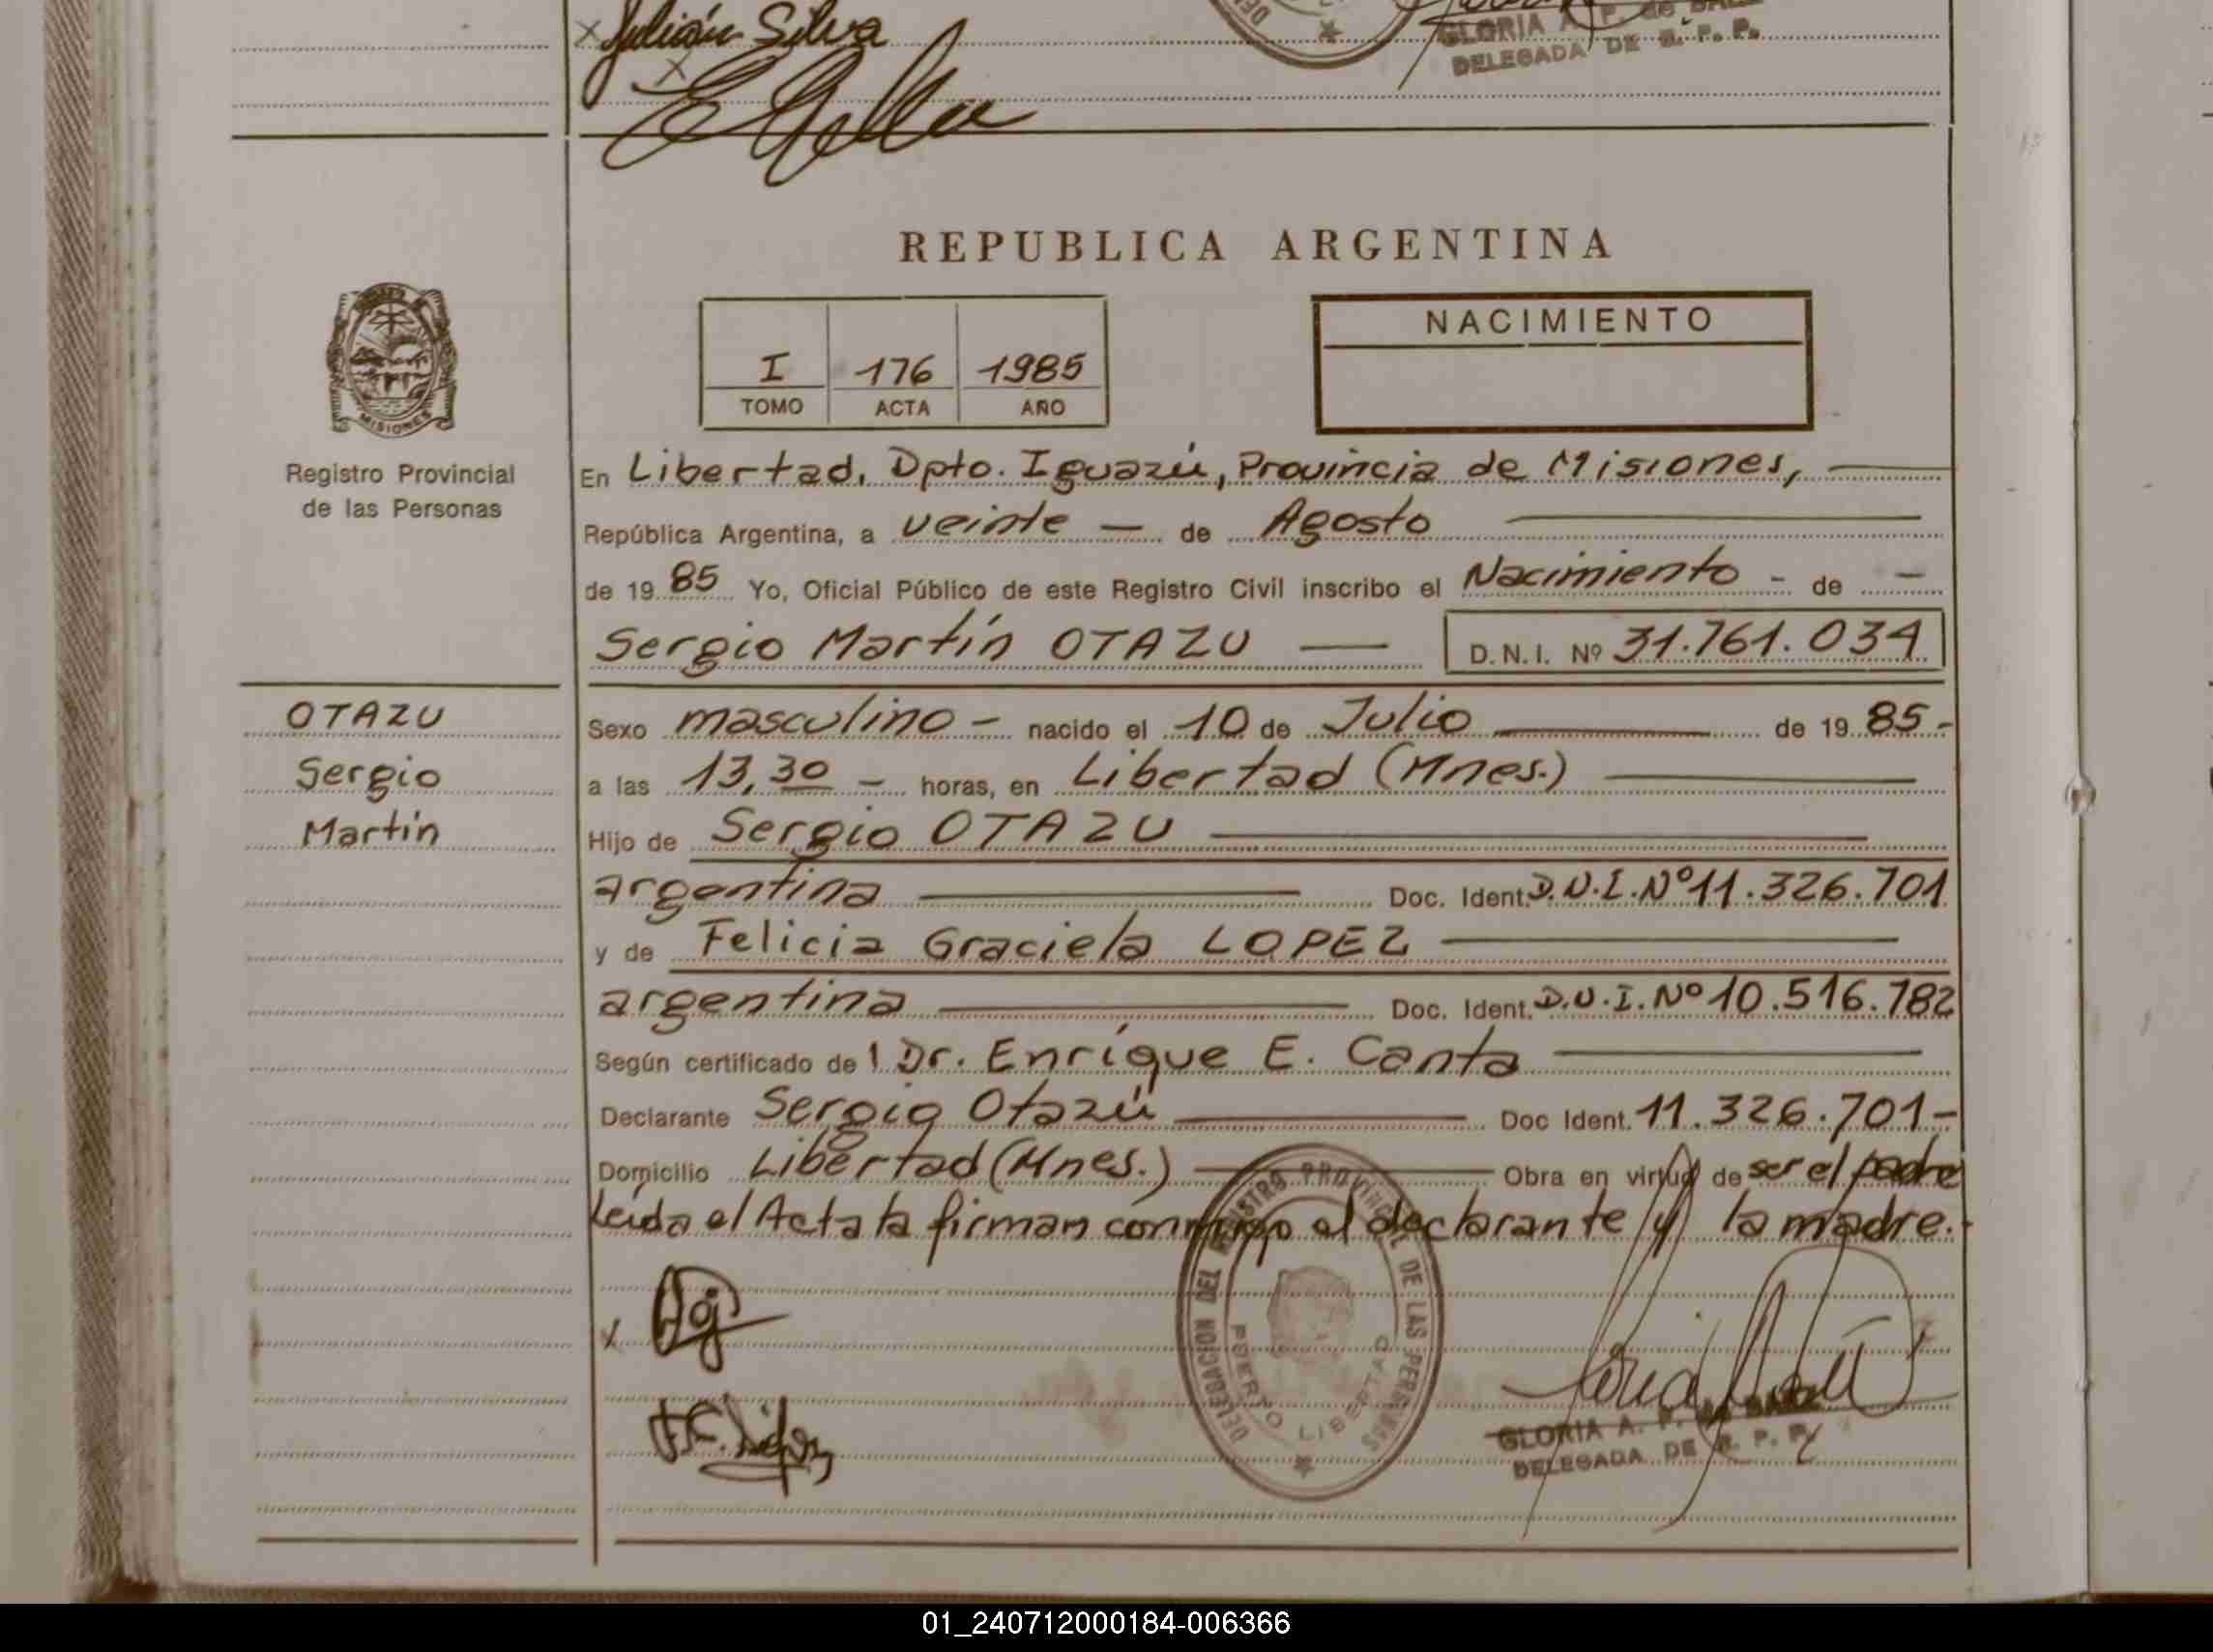 Julián Silva
GLORIA A. P. de
DELEGADA DE R. P. P.
REPUBLICA ARGENTINA
NACIMIENTO
I 176 1985
TOMO ACTA AÑO
MISIONES
Registro Provincial
de las Personas
En Libertad, Dpto. Iguazú, Provincia de Misiones,
República Argentina, a veinte — de Agosto
de 1985 Yo, Oficial Público de este Registro Civil inscribo el Nacimiento - de -
Sergio Martín OTAZU — D.N.I. Nº 31.761.034
OTAZU
Sergio
Martín
Sexo masculino - nacido el 10 de Julio de 1985.-
a las 13,30 - horas, en Libertad (Mnes.)
Hijo de Sergio OTAZU
argentina Doc. Ident. D.N.I. Nº 11.326.701
y de Felicia Graciela LOPEZ
argentina Doc. Ident. D.N.I. Nº 10.516.782
Según certificado de l Dr. Enríque E. Canta
Declarante Sergio Otazú Doc Ident. 11.326.701-
Domicilio Libertad (Mnes.) Obra en virtud de ser el padre
Leída el Acta la firman conmigo el declarante y la madre.-
DELEGACION DEL REGISTRO PROVINCIAL DE LAS PERSONAS
PUERTO LIBERTAD
GLORIA A. P. de
DELEGADA DE R. P. P.
01_240712000184-006366